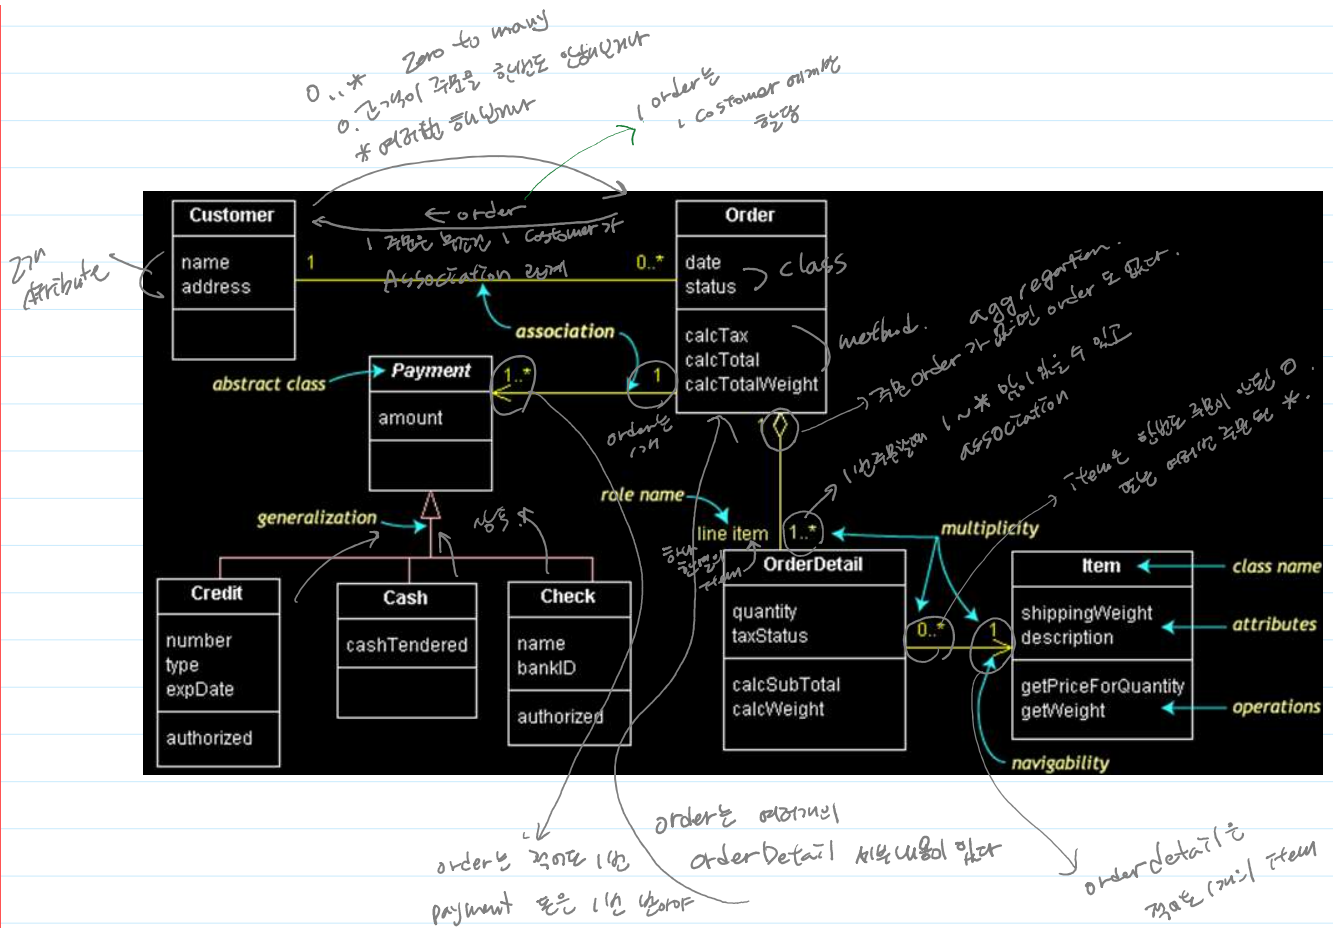 0..* Zero to many
0. 고객이 주문을 한번도 안했거나
* 여러번 했거나
1 order는
1 Costomer에게만
할당
Customer
name
address
2개
Attribute
← order
1 주문은 1 Costomer가
Association 관계
1
0..*
Order
date
status
class
calcTax
calcTotal
calcTotalWeight
method.
aggregation.
주문 order가 없으면 order도 없다.
association
abstract class
Payment
amount
1..*
1
order는
1개
1번 주문할때 1~* 있을 수 있고
association
item은 한번도 주문이 안된 0.
또는 여러번 주문된 *.
generalization
상속
role name
line item
1..*
multiplicity
하나
item
Credit
number
type
expDate
authorized
Cash
cashTendered
Check
name
bankID
authorized
OrderDetail
quantity
taxStatus
calcSubTotal
calcWeight
0..*
1
Item
shippingWeight
description
getPriceForQuantity
getWeight
class name
attributes
operations
navigability
order는 적어도 1번
payment 돈은 1번 받아야
order는 여러개의
orderDetail 세부내용이 있다
orderdetail은
적어도 1개의 item